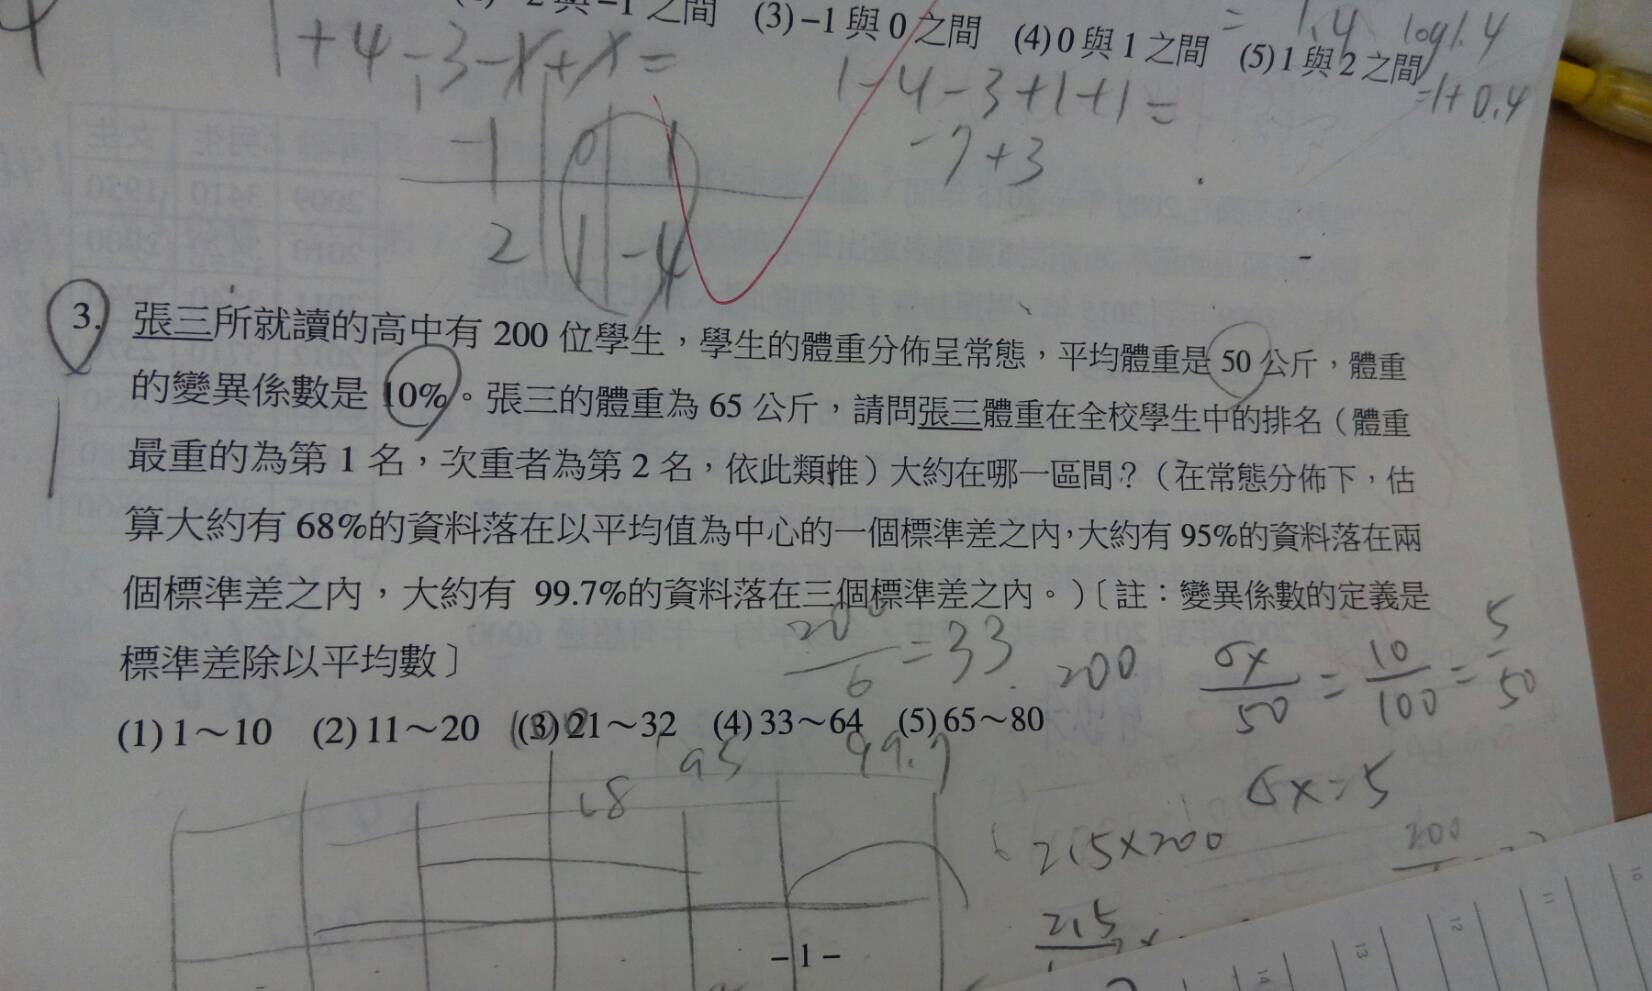 2與-1之間 (3)-1與0之間 (4)0與1之間 (5)1與2之間
= 1.4 log1.4
=1+0.4
1+4-3-x+x=
1-4-3+1+1=
-7+3
-1 0 1
2 1 -4
3. 張三所就讀的高中有 200 位學生，學生的體重分佈呈常態，平均體重是 50 公斤，體重
的變異係數是 10%。張三的體重為 65 公斤，請問張三體重在全校學生中的排名（體重
最重的為第 1 名，次重者為第 2 名，依此類推）大約在哪一區間？（在常態分佈下，估
算大約有 68%的資料落在以平均值為中心的一個標準差之內，大約有 95%的資料落在兩
個標準差之內，大約有 99.7%的資料落在三個標準差之內。）〔註：變異係數的定義是
標準差除以平均數〕
200/6=33
200
σx/50=10/100=5/50
(1) 1～10 (2) 11～20 (3) 21～32 (4) 33～64 (5) 65～80
68 95 99.7
σx=5
2.5×200
200
2.5
-1-
10
11
12
13
14